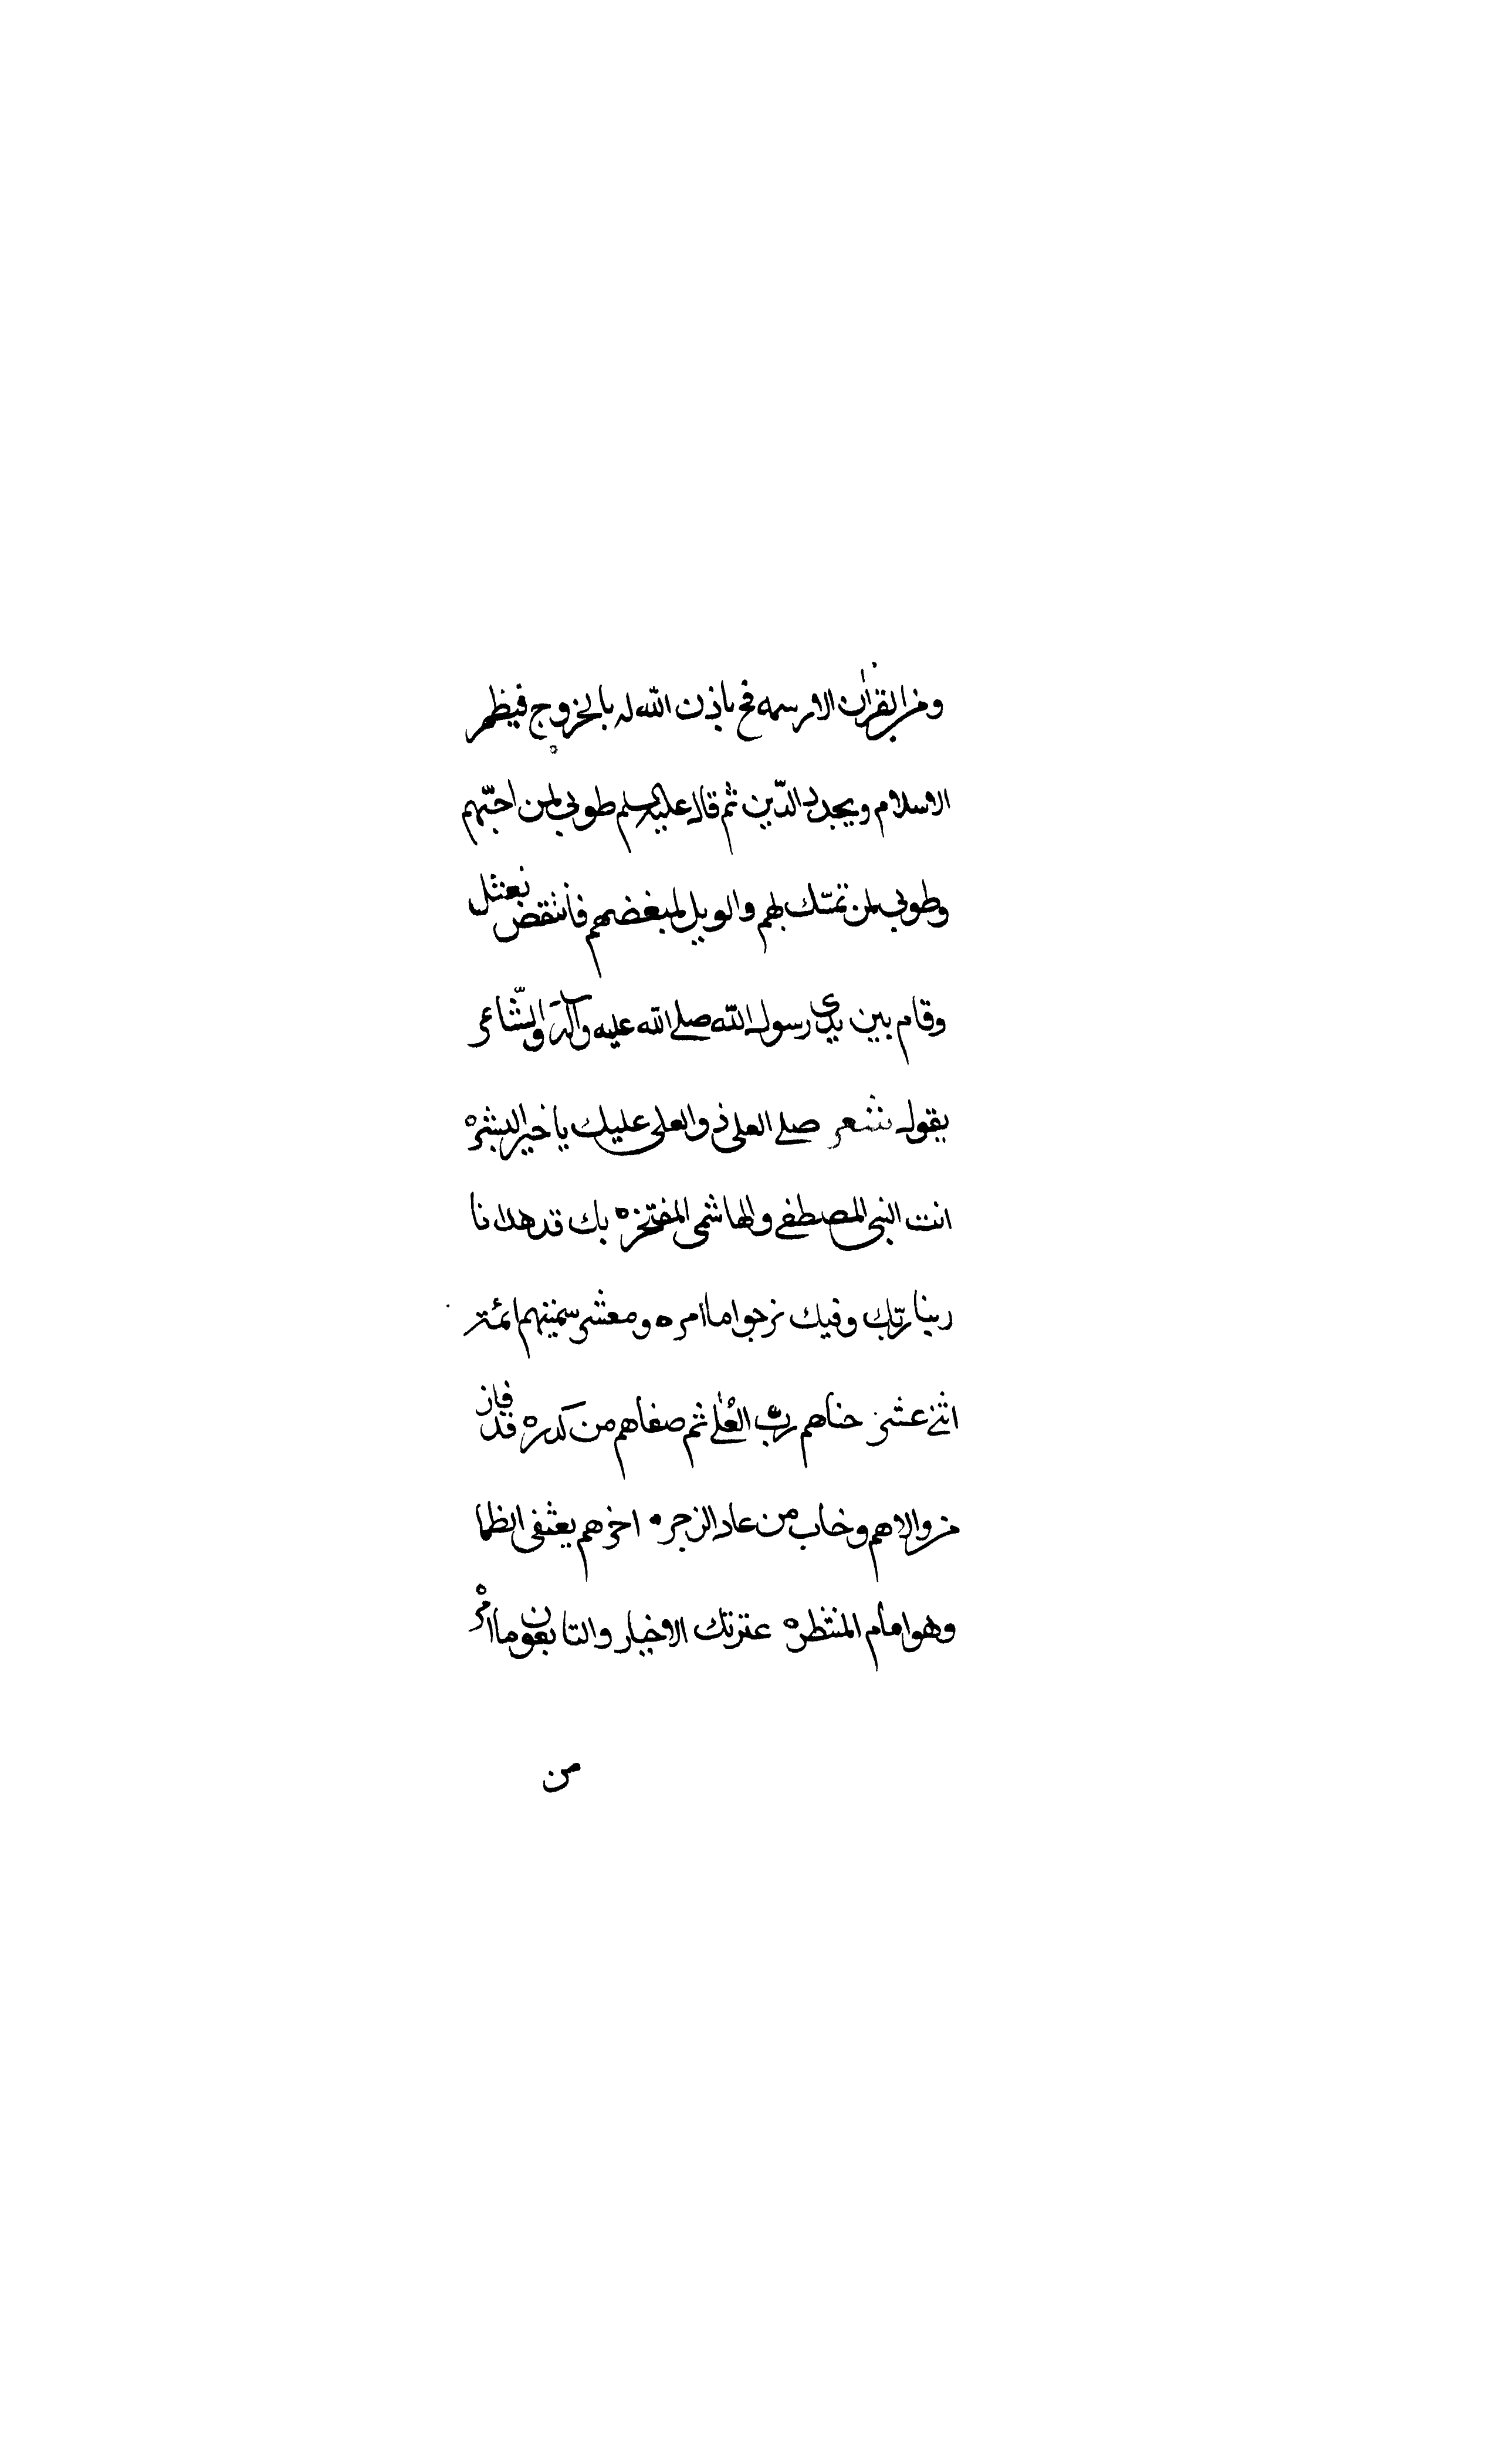 ومن القرآن الا رسمه فح ياذن الله له بالخروج فيظهر
الاسلام ويجدد الدّين ثم قال عليه السلم طوبى لمن احبّهم
وطوبى لمن تمسّك بهم والويل لمبغضهم فانتقض نعثل
وقام بين يدي رسول الله صلى الله عليه وآله وانشّاء
يقول شعر صلى العلى ذو العلى عليك يا خير البشره
انت النبى المصطفى والهاشمى المفتخره بك قد هدانا
ربنا وفيك نرجوا ما امره ومعشر سميتهم ائمة
اثنى عشر حباهم ربّ العُلى ثم صفاهم من كدره قد فاز
من والاهم وخاب من عاد الزهره اخرهم يشفى الظما
وهو امام المنتظره عترتك الاخيار والتابعون ما امره
من